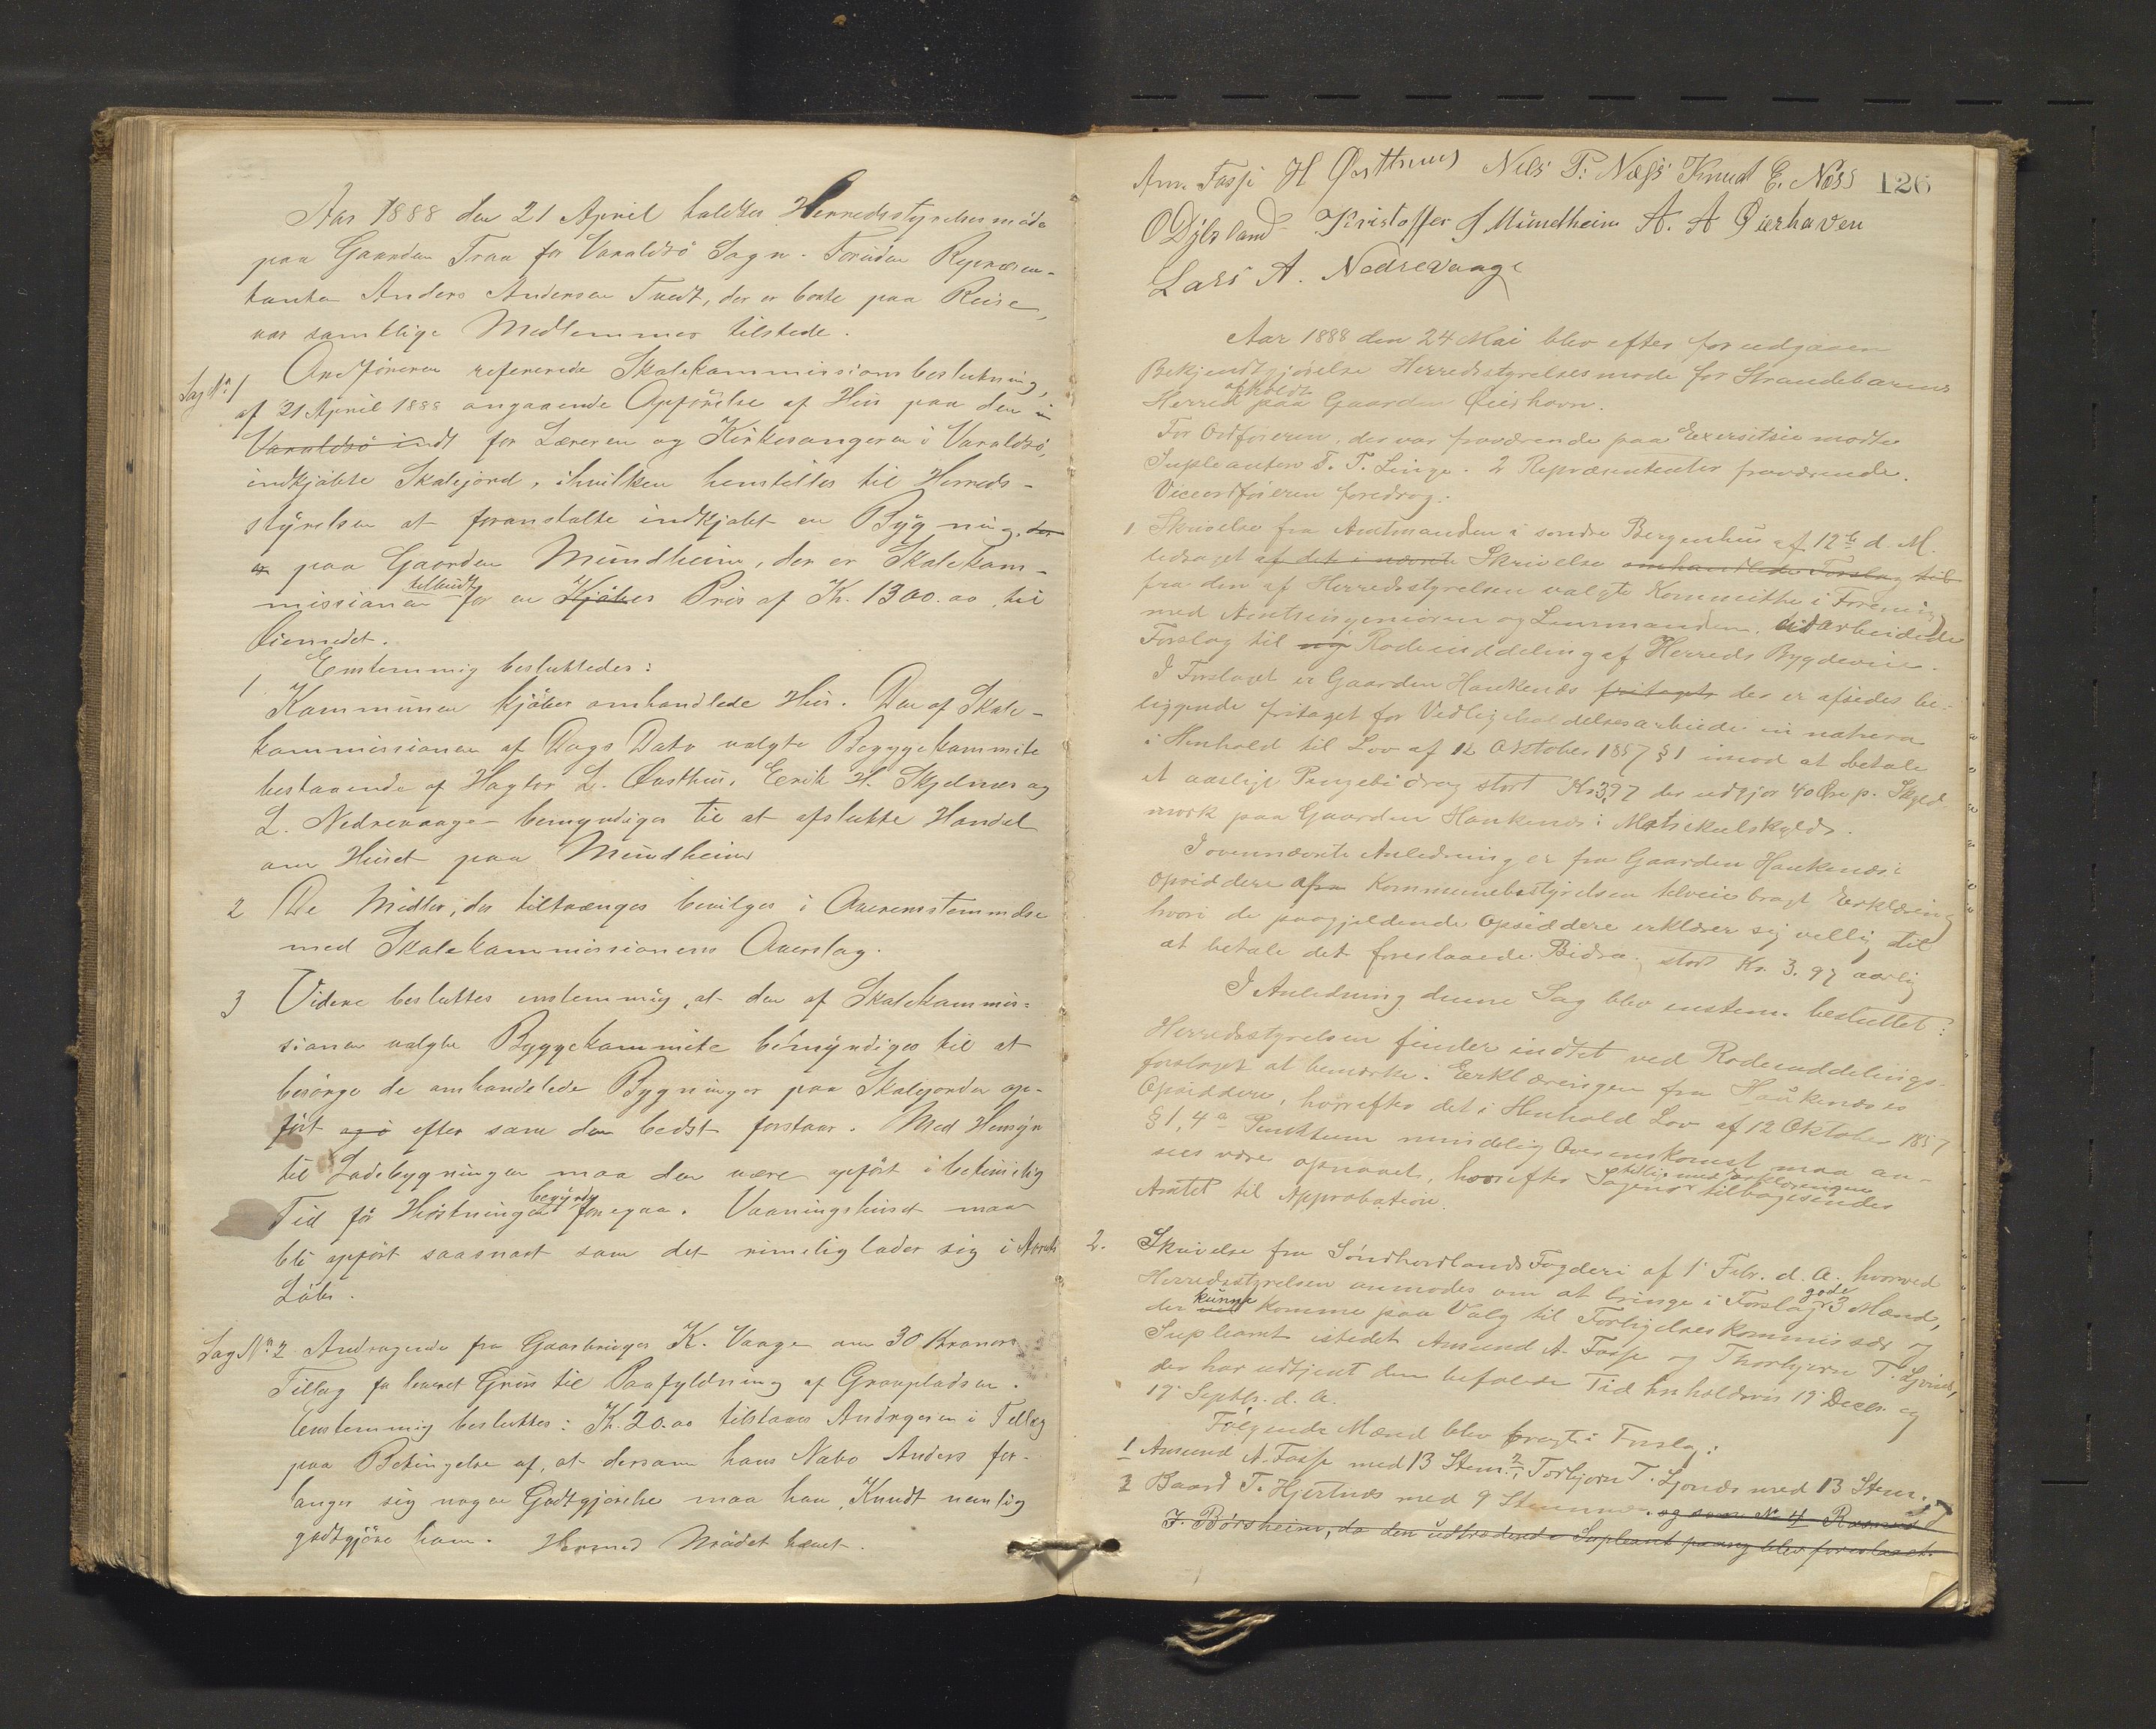 Aar 1888 den 21 April holdtes Herredsstyrelsesmöde
paa Gaarden Traa for Varaldsö Sogn. Foruden Repræsen-
tanten Anders Andersen Tvedt, der er borte paa Reise,
var samtlige Medlemmer tilstede.
Sag No 1 Ordföreren refererede Skolekommissionsbeslutning,
af 21 April 1888 angaaende Opförelse af Hus paa den i
Varaldsö indt for Læreren og Kirkesangeren i Varaldsö,
indkjöbte Skolejord, ihvilken henstilles til Herreds-
styrelsen at foranstalte indkjöbt en Bygning, der
er paa Gaarden Mundheim, der er Skolekom-
missionen tilbudt for en Kjöbes Pris af Kr. 1300.00 til
Öiemedet.
Enstemmig besluttedes:
1 Kommunen kjöber omhandlede Hus. Den af Skole-
kommissionen af Dags Dato valgte Byggekommite
bestaaende af Hagtor L. Øvsthus, Erik H. Skjelnes og
L. Nedrevaage bemyndiges til at afslutte Handel
om Huset paa Mundheim
2 De Midler, der tiltrænges bevilges i Overensstemmelse
med Skolekommissionens Overslag.
3 Videre besluttes enstemmig, at den af Skolekommis-
sionen valgte Byggekommite bemyndiges til at
besörge de omhandlede Bygninger paa Skolejorden op-
fört og i efter som den bedst forstaar. Med Hensyn
til Ladebygningen maa den være opfört i betimelig
Tid för Höstningen begynder foregaa. Vaaningshuset maa
bli opfört saasnart som det rimelig lader sig i Aarets
Löb.
Sag No 2 Andragende fra Gaardbruger K. Vaage om 30 Kroners
Tillæg for leveret Grus til Paafyldning af Gravpladsen.
Enstemmig besluttes: Kr. 20.00 tilstaaes Andrageren i Tillæg
paa Betingelse af, at dersom hans Nabo Anders for-
langer sig nogen Godtgjörelse maa han, Knudt nemlig
godtgjöre ham. Hermed Mödet hævet.
Am. Fosse H Øvsthus Nils P. Næss Knud E. Næss 126
O Djövland Kristoffer J Mundheim A. A Øierhaven
Lars A. Nedrevaage
Aar 1888 den 24 Mai blev efter forudgaaen
Bekjendtgjörelse Herredsstyrelsesmöde for Strandebarms
Herred afholdt paa Gaarden Øierhavn.
For Ordföreren, der var fraværende paa Exersitsie mödte
Supleanten T. T. Linge. 2 Repræsentanter fraværende.
Viceordföreren foredrog:
1 Skrivelse fra Amtmanden i söndre Bergenhus af 12te d. M.
ledsaget af det i nævnte Skrivelse omhandlede Forslag til
fra den af Herredsstyrelsen valgte Kommitte i Forening
med Amtsingeniören og Lensmanden, udarbeidede
Forslag til ny Rodeinddeling af Herreds Bygdeveie.
I Forslaget er Gaarden Haukenæs fritaget der er afsides be-
liggende fritaget for Vedligeholdelsesarbeide in natura
i Henhold til Lov af 12 Oktober 1857 § 1 imod at betale
et aarligt Pengebidrag stort Kr 3,97 der udgjör 40 Øre p. Skyld-
mark paa Gaarden Haukenæs Matrikulskyld.
I ovennævnte Anledning er fra Gaarden Haukenæs
Opsiddere af Kommunebestyrelsen tilveiebragt Erklæring
hvori de paagjeldende Opsiddere erklærer sig villig til
at betale det foreslaaede Bidra. stort Kr. 3.97 aarlig
I Anledning denne Sag blev enstem. besluttet:
Herredsstyrelsen finder indtet ved Rodeinddelings-
forslaget at bemærke. Erklæringen fra Haukenæs es
Opsiddere, hvorefter det i Henhold Lov af 12 Oktober 1857
§ 1, 4de Punktum mindelig Overenskomst maa an-
sees være opnaaet, hvorefter Sagens tilligemed Erklæringen tilbagesendes
Amtet til Approbation.
2. Skrivelse fra Söndhordlands Fogderi af 1 Febr. d. A. hvorved
Herredsstyrelsen anmodes om at bringe i Forslag gode 3 Mænd,
der kunne komme paa Valg til Forligelseskommissær og
Supleant istedet Amund A. Fosse og Thorbjørn T. Ljönes,
der har udtjent den befalede Tid henholdsvis 19 Decbr. og
19 Septbr. d. A.
Fölgende Mænd blev bragt i Forslag:
1 Amund A. Fosse med 13 Stem. 2, Torbjørn T. Ljonæs med 13 Stem.
3 Baard T. Hjertnæs med 9 Stemmer. og som No 4 Rasmus
J. Børsheim, da den udtrædende Supleant paany blev foreslaaet.